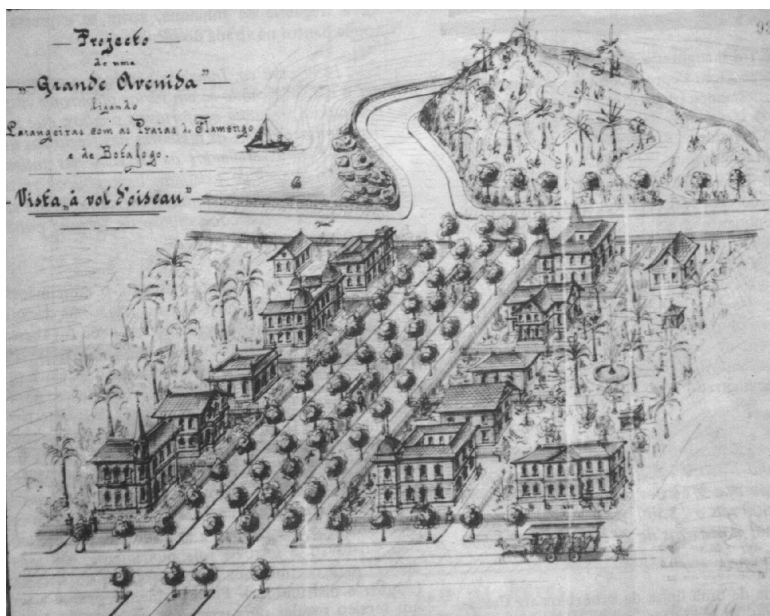 Projecto
de uma
„Grande Avenida”
ligando
Larangeiras com as Praias do Flamengo
e de Botafogo.
Vista „à vol d'oiseau”